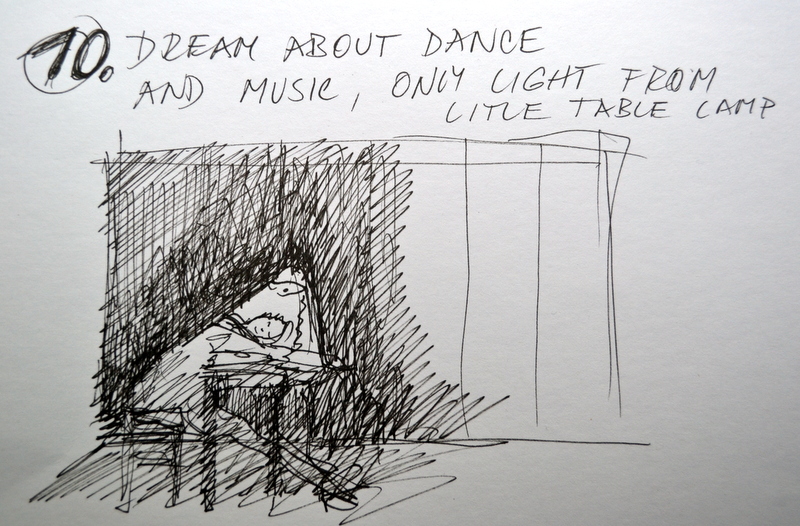 10. DREAM ABOUT DANCE
AND MUSIC, ONLY LIGHT FROM
LITLE TABLE LAMP